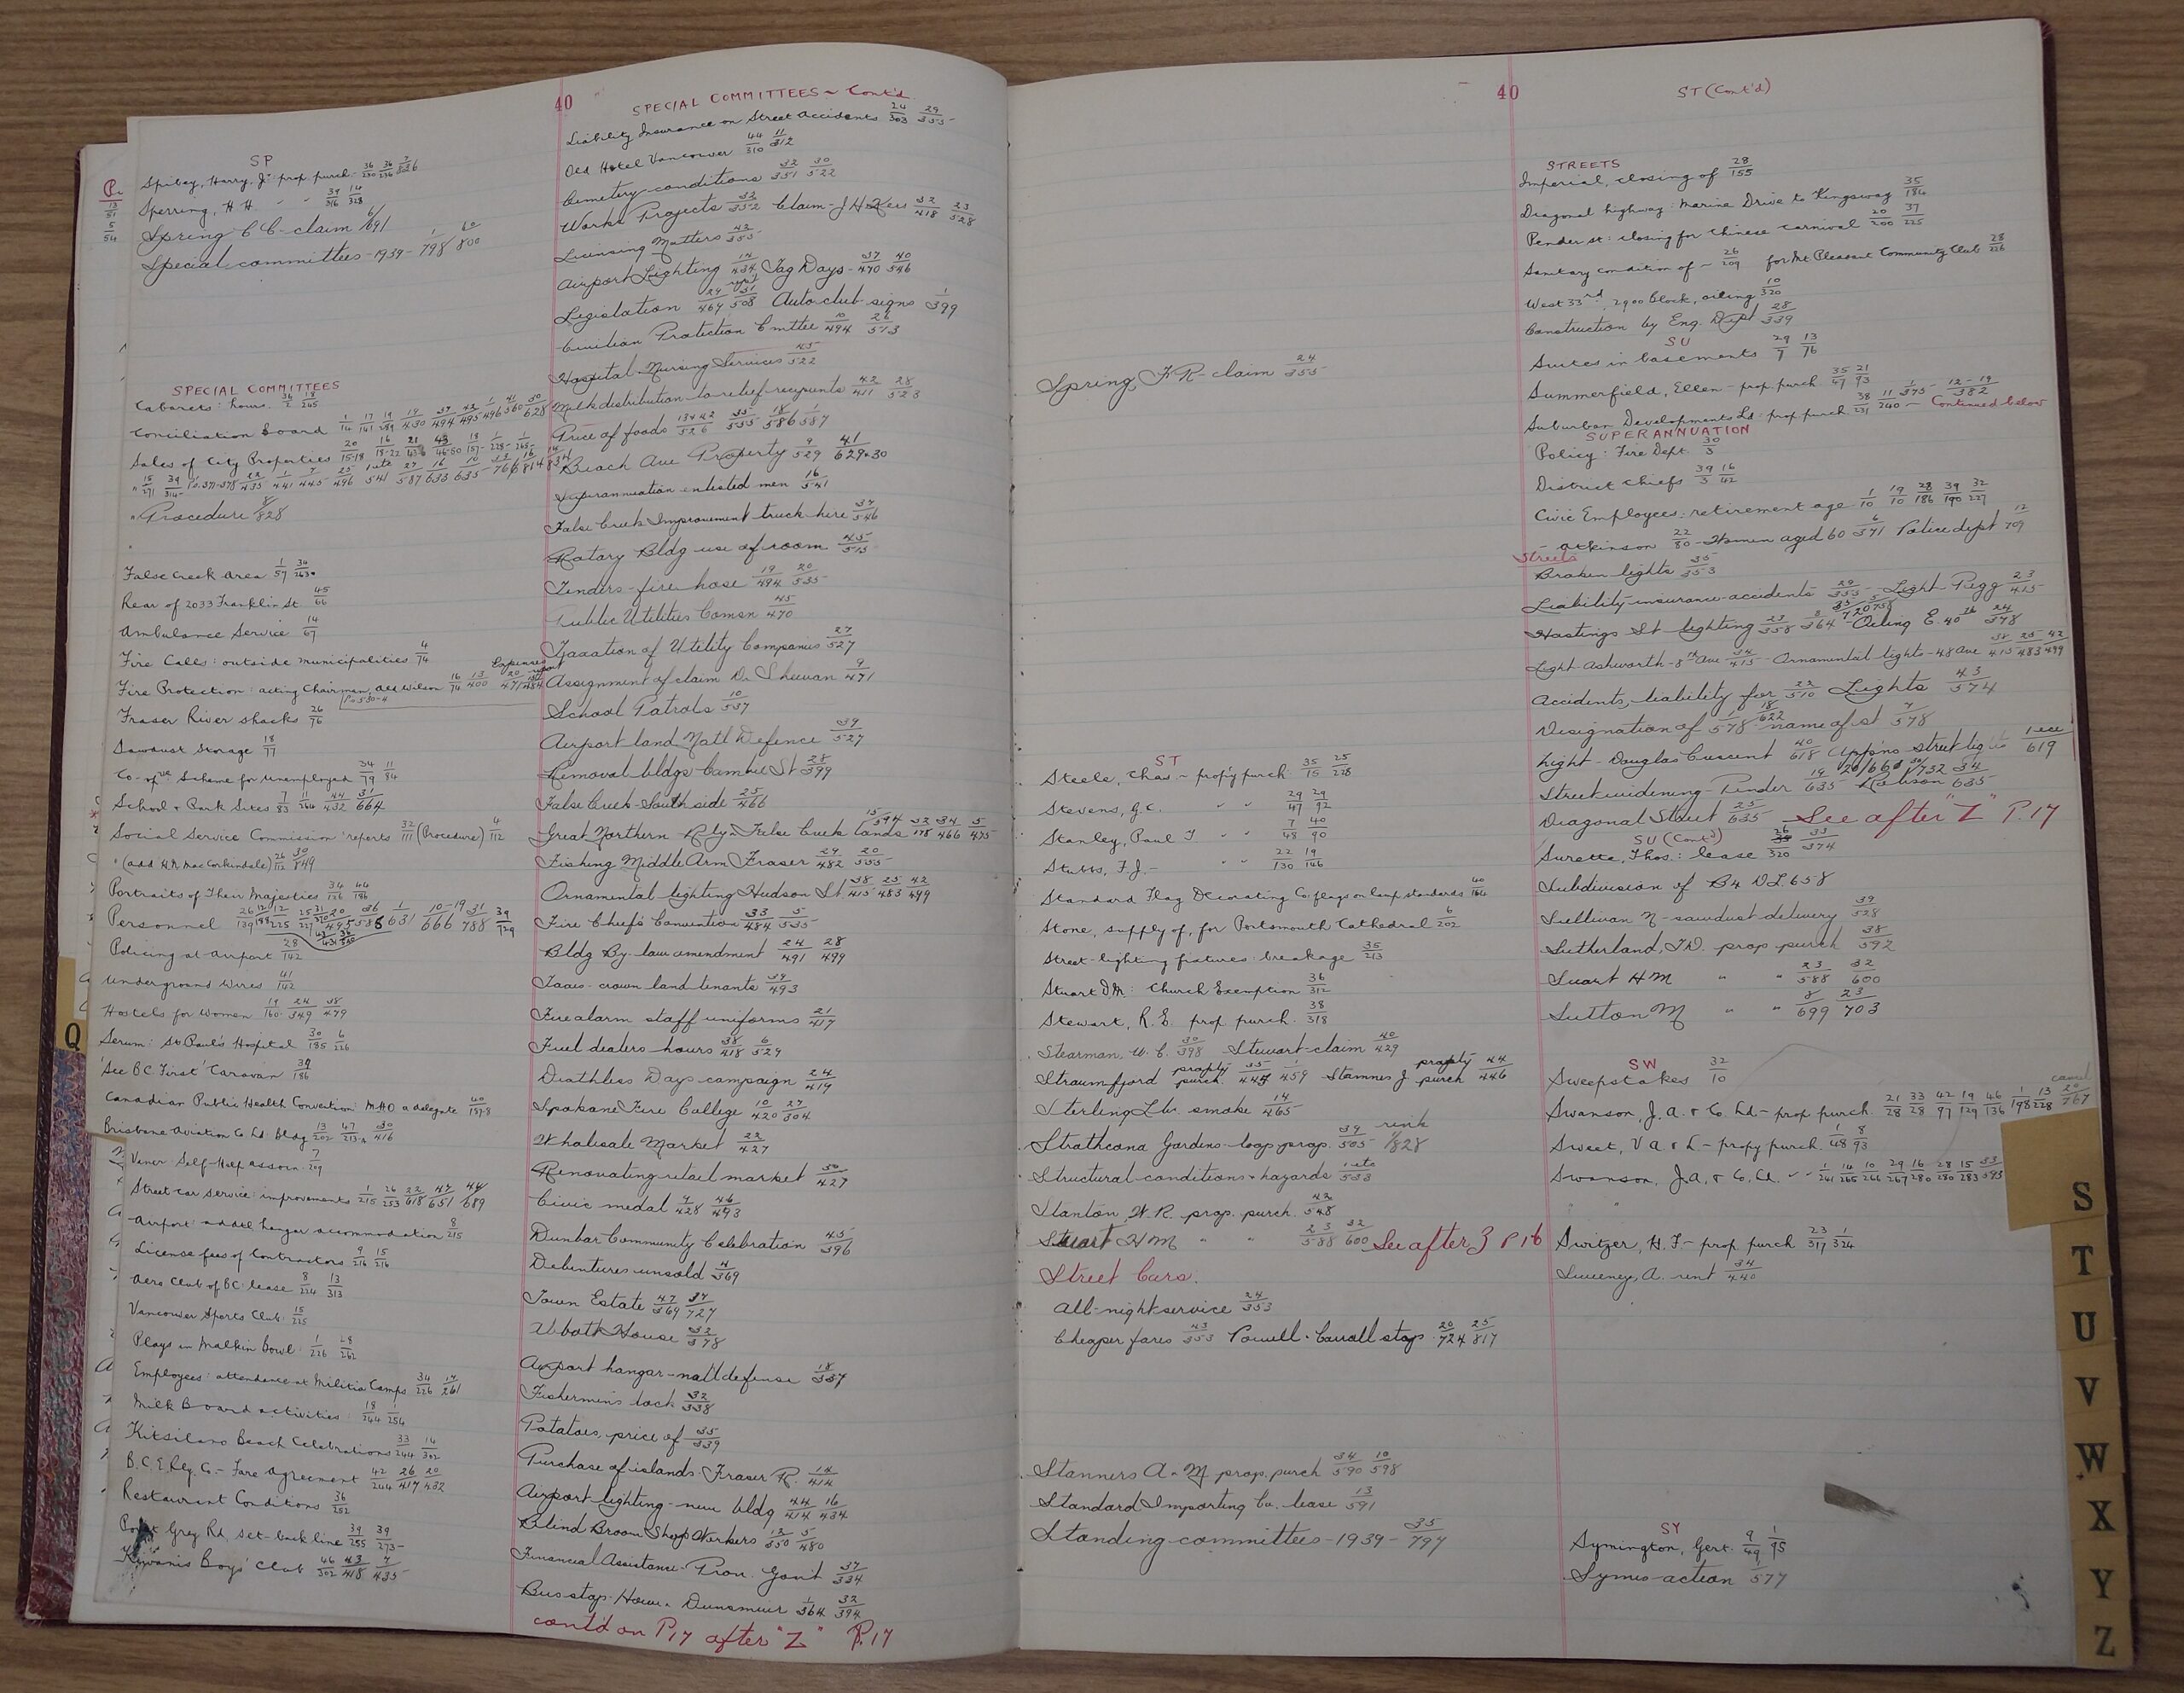 SP
Spibey, Harry, Jr. prop. purch. 36/230 36/236 7/236
Sperring, H.H. " " 39/316 14/328
Spring C C - claim 6/691
Special committees - 1939 - 1/798 60/800
SPECIAL COMMITTEES
Cabarets: hours. 36/2 18/245
Conciliation Board 1/14 17/141 19/289 19/430 39/494 42/495 1/496 41/560 30/628
Sales of City Properties
" Procedure 8/828
False Creek Area 1/57 34/263
Rear of 2033 Franklin St. 45/66
Ambulance Service 14/67
Fire Calls: outside municipalities 4/74
Fire Protection: acting Chairman, Ald. Wilson 16/74 13/400
Fraser River shacks 26/76
Sawdust Storage 18/77
Co-op've Scheme for Unemployed 34/79 11/84
School & Park Sites 7/83 11/264 44/432 31/664
Social Service Commission reports 32/111 (Procedure) 4/112
" (add H.N. MacCorkindale) 26/112 30/849
Portraits of Their Majesties 34/126 44/186
Personnel
Policing at Airport 28/142
Underground Wires 41/142
Hostels for Women 19/160 24/349 38/479
Serum: St Paul's Hospital 30/185 6/226
'See B.C. First' Caravan 39/186
Canadian Public Health Convention: M.H.O. a delegate 40/187-8
Brisbane Aviation Co Ld: Bldg 13/202 47/213 30/416
Vancr. Self-Help Assocn. 7/209
Street car service: improvements 1/215 26/253 22/618 47/651 44/689
Airport: addtl hangar accommodation 8/215
License fees of Contractors 9/216 15/216
Aero Club of BC: lease 8/224 13/313
Vancouver Sports Club: 15/225
Plays in Malkin Bowl: 1/226 28/262
Employees: attendance at Militia Camps 34/226 14/261
Milk Board activities 18/244 1/254
Kitsilano Beach Celebrations 33/244 14/302
B.C.E.Rly. Co. - Fare Agreement 42/244 26/417 20/432
Restaurant Conditions 36/252
Point Grey Rd. set-back line 39/255 39/273
Kiwanis Boys' Club 46/302 43/418 7/435
40
SPECIAL COMMITTEES - Cont'd
Liability Insurance on Street Accidents 24/303 29/353
Old Hotel Vancouver 44/310 11/312
Cemetery conditions 32/351 30/522
Works Projects 32/352 Claim - J H Kerr 32/418 23/528
Licensing Matters 42/353
Airport Lighting 14/434 Tag Days - 37/470 40/546
Legislation 24/467 31/508 Auto club signs 1/399
Civilian Protection Cmttee 10/494 26/573
Hospital Nursing Services 45/522
Milk distribution to relief recipients 42/411 28/523
Price of foods
Beach Ave Property 9/529 41/629-30
Superannuation enlisted men 16/541
False Creek Improvement truck hire 37/546
Rotary Bldg use of room 45/515
Tenders - fire hose 19/494 20/535
Public Utilities Comsn 45/470
Taxation of Utility Companies 27/527
Assignment of claim Dr Sheeran 9/471
School Patrols 10/537
Airport land Natl Defence 39/527
Removal bldgs Cambie St 28/399
False Creek - South side 25/466
Great Northern Rly - False Creek lands 15/594 32/178 34/466 5/475
Fishing Middle Arm Fraser 24/482 20/535
Ornamental lighting Hudson St. 38/415 25/483 42/499
Fire Chiefs Convention 33/484 5/535
Bldg By-law amendment 24/491 28/499
Taxes - crown land tenants 39/493
Fire alarm staff uniforms 21/417
Fuel dealers hours 38/418 6/529
Deathless Days campaign 24/419
Spokane Fire College 10/420 27/304
Wholesale Market 22/427
Renovating retail market 36/427
Civic medal 4/428 46/493
Dunbar Community Celebration 45/396
Debentures unsold 4/369
Town Estate 47/369 37/727
Abbott House 32/378
Airport hangar - natl defense 18/337
Fishermens lock 32/338
Potatoes, price of 35/339
Purchase of islands - Fraser R. 14/414
Airport lighting - new bldg 44/414 16/434
Blind Broom Shop Workers 13/350 5/480
Financial Assistance - Prov. Govt 37/334
Bus stop - Howe & Dunsmuir 1/364 32/394
cont'd on P17 after "Z" P.17
Spring, F R - claim 24/355
ST
Steele, Chas. - prop'y purch. 35/15 25/228
Stevens, G.C. " " 29/47 29/92
Stanley, Paul T " " 7/48 40/90
Stubbs, F.J. - " " 22/130 19/146
Standard Flag Decorating Co: flags on lamp standards 40/164
Stone, supply of, for Portsmouth Cathedral 6/202
Street lighting fixtures: breakage 35/213
Stuart D M: Church Exemption 36/312
Stewart, R.E. prop. purch. 38/318
Stearman, W. C. 30/398 Stewart - claim 40/429
Straumfjord propty purch. 35/445 1/459 Stamnes J propty purch 44/446
Sterling Lbr. smoke 14/465
Strathcona Gardens - loops props. 39/505 rink 1/828
Structural conditions - hazards 1 etc/533
Stanton, W.R. prop. purch. 42/548
Stuart H M " " 23/588 32/600 See after Z P 16
Street Cars.
All-night service 24/353
Cheaper fares 43/353 Powell - Carrall stop 20/724 25/817
Stanners A. M prop. purch 34/590 10/598
Standard Importing Co. lease 13/591
Standing committees - 1939 - 35/797
40
ST (Cont'd)
STREETS
Imperial, closing of 28/155
Diagonal highway: Marine Drive to Kingsway 35/184
Pender St: closing for Chinese carnival 20/200 37/225
Sanitary condition of - 26/209 for Mt Pleasant Community Club 28/226
West 33rd, 2900 block, oiling 10/320
Construction by Eng. Dept 28/339
SU
Suites in basements 29/7 13/76
Summerfield, Ellen - prop. purch. 35/47 21/93
Suburban Developments Ld: prop. purch. 38/231 11/240 1/375 12-19/382 - Continued below
SUPERANNUATION
Policy: Fire Dept. 30/3
District Chiefs 39/3 16/42
Civic Employees: retirement age 1/10 19/10 28/186 39/190 32/227
- Atkinson 22/80 - Women aged 60 6/371 Police dept 12/709
Streets
Broken lights 35/353
Liability insurance - accidents 29/353 - Light - Pegg 23/415
Hastings St lighting 23/358 8/364 Oiling E. 40th 24/378
Light - Ashworth - 8th Ave 34/415 - Ornamental lights - 48 Ave 38/415 25/483 42/499
Accidents, liability for 22/510 Lights 43/574
Designation of 1/578 18/622 name of st 7/578
Light - Douglas Crescent 40/618 Appns street lights 1 etc/619
Street widening - Pender 14/635 20/660 34/732 Robson 34/635
Diagonal Street 25/635 See after "Z" P.17
SU (Cont'd)
Surette, Thos.: lease 26/320 33/374
Subdivision of B4 DL 658
Sullivan N - sawdust delivery 39/528
Sutherland, T.D. prop. purch 38/592
Suart H M " " 23/588 32/600
Sutton M " " 8/699 23/703
SW
Sweepstakes 32/10
Swanson, J.A. & Co. Ld. - prop. purch. 21/28 33/28 42/97 19/129 46/136 1/198 13/228 cancel 20/767
Sweet, V A & L - propy purch. 1/48 8/93
Swanson, J.A. & Co. Ld. - " 1/261 14/265 10/266 29/267 16/280 28/280 15/283 33/393
Switzer, H.F. - prop. purch 23/317 1/324
Sweeney, A. rent 34/440
SY
Symington, Gert. 9/49 1/95
Symes - action 1/577
Q
S
T
U
V
W
X
Y
Z